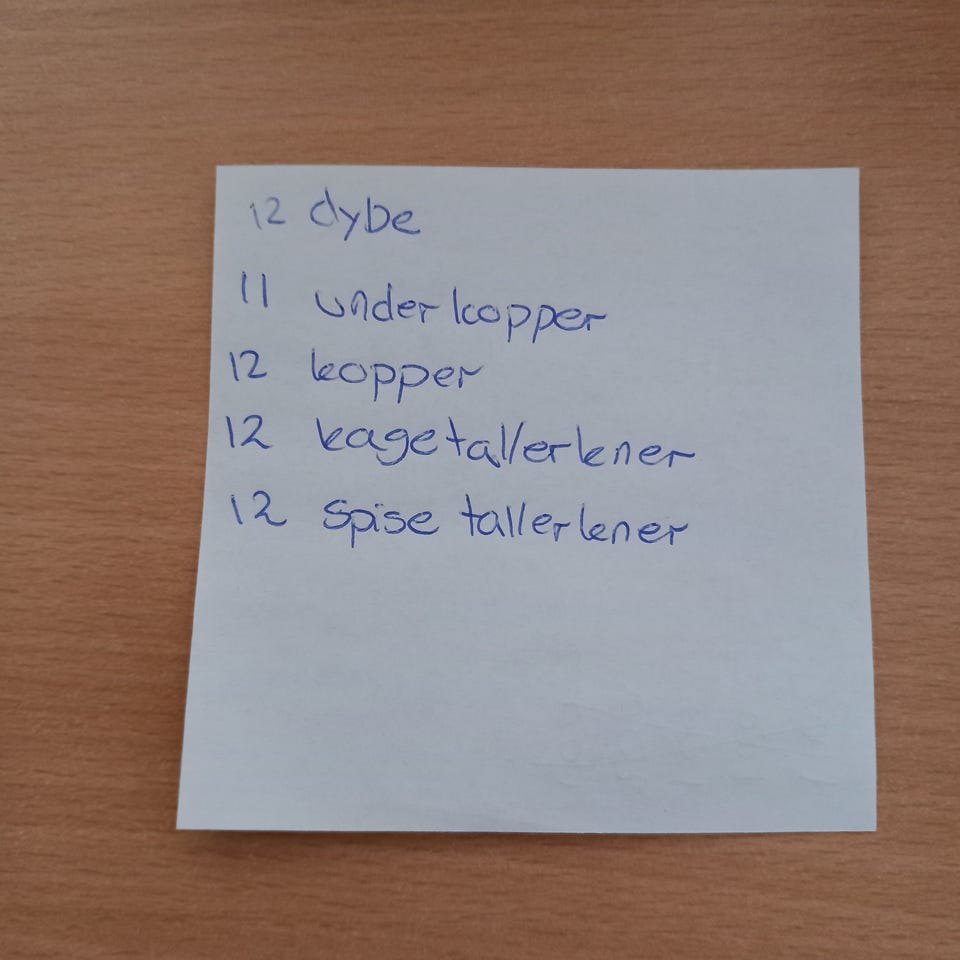 12 dybe
11 underkopper
12 kopper
12 kagetallerkner
12 spise tallerkener